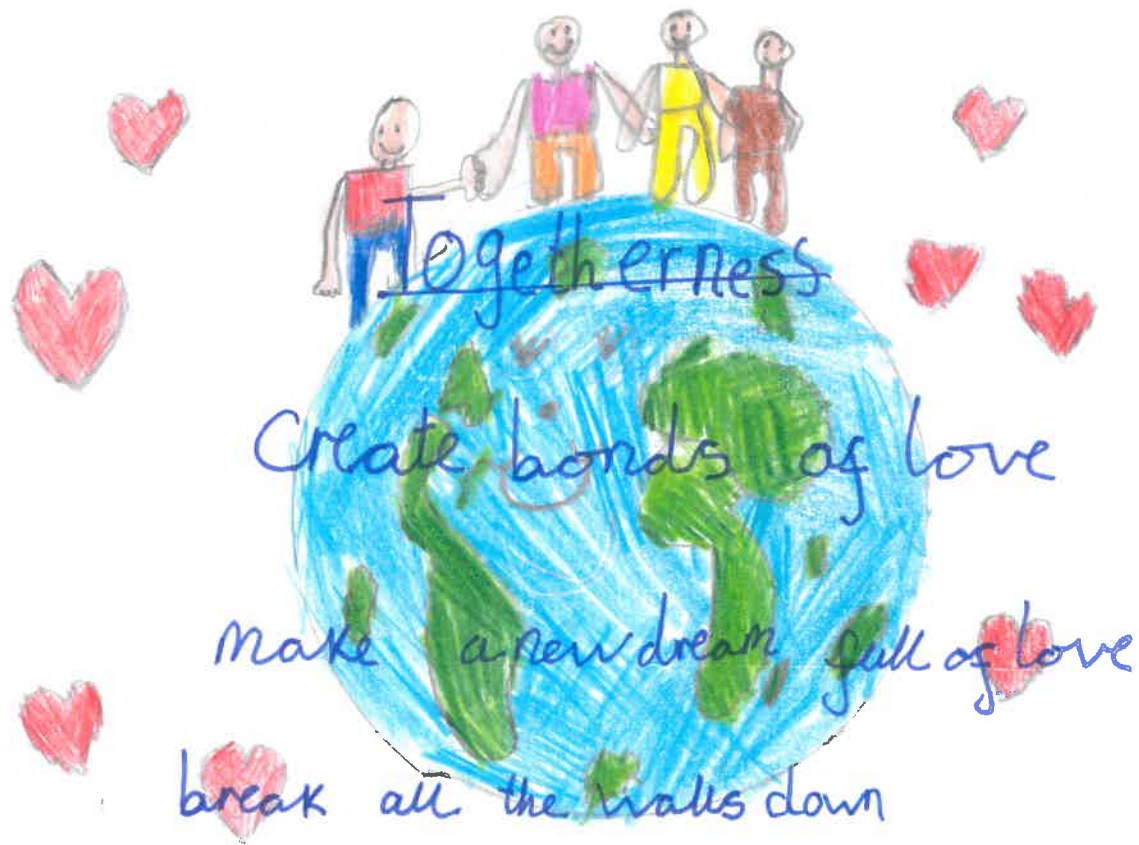 Togetherness
Create bonds of love
make a new dream full of love
break all the walls down